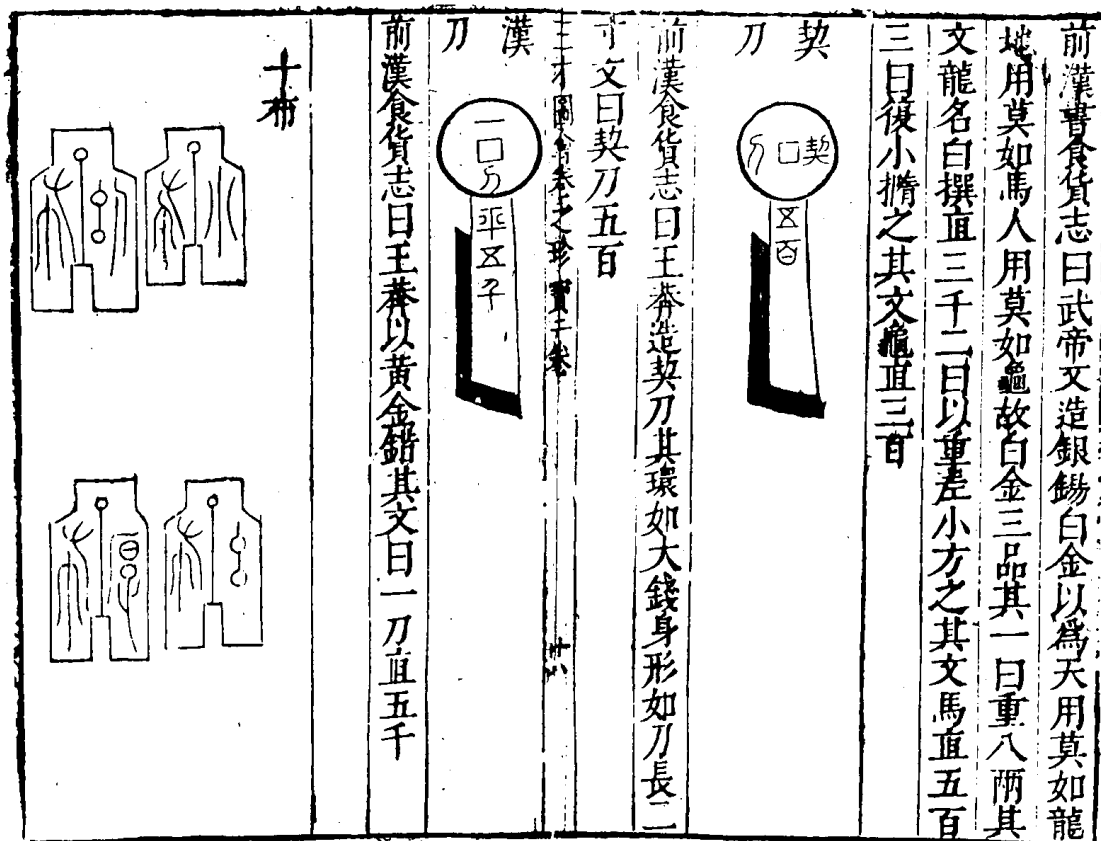 前漢書食貨志曰武帝又造銀錫白金以為天用莫如龍
地用莫如馬人用莫如龜故白金三品其一曰重八兩其
文龍名白撰直三千二曰以重差小方之其文馬直五百
三曰復小撱之其文龜直三百
契刀
契刀
五百
前漢食貨志曰王莽造契刀其環如大錢身形如刀長二
寸文曰契刀五百
三才圖會卷之珍寶二卷
卅六
漢刀
一刀
平五千
前漢食貨志曰王莽以黃金錯其文曰一刀直五千
十布